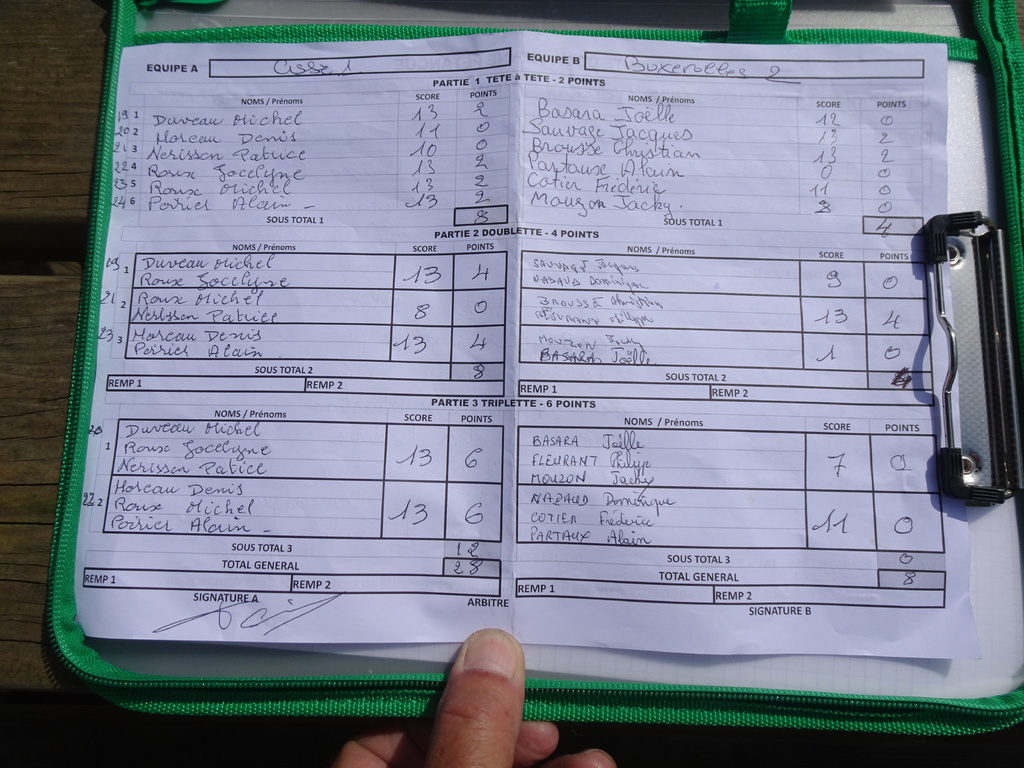 EQUIPE A Cissé 1 EQUIPE B Buxerolles 2
PARTIE 1 TETE à TETE - 2 POINTS
NOMS / Prénoms SCORE POINTS NOMS / Prénoms SCORE POINTS
19 1 Duveau Michel 13 2 Basara Joëlle 12 0
20 2 Moreau Denis 11 0 Sauvage Jacques 13 2
21 3 Nerisson Patrice 10 0 Brousse Christian 13 2
22 4 Roux Jocelyne 13 2 Partaux Alain 0 0
23 5 Roux Michel 13 2 Cotier Frédéric 11 0
24 6 Poirier Alain - 13 2 Mouzon Jacky. 8 0
SOUS TOTAL 1 8 SOUS TOTAL 1 4
PARTIE 2 DOUBLETTE - 4 POINTS
NOMS / Prénoms SCORE POINTS NOMS / Prénoms SCORE POINTS
19 1 Duveau Michel 13 4 SAUVAGE Jacques 9 0
Roux Jocelyne NADAUD Dominique
21 2 Roux Michel 8 0 BROUSSE Christian 13 4
Nerisson Patrice FLEURANT Philippe
23 3 Moreau Denis 13 4 MOUZON Jacky 1 0
Poirier Alain BASARA Joëlle
SOUS TOTAL 2 8 SOUS TOTAL 2 4
REMP 1 REMP 2 REMP 1 REMP 2
PARTIE 3 TRIPLETTE - 6 POINTS
NOMS / Prénoms SCORE POINTS NOMS / Prénoms SCORE POINTS
20 Duveau Michel BASARA Joëlle
1 Roux Jocelyne 13 6 FLEURANT Philipp 7 0
Nerisson Patice MOUZON Jacky
Moreau Denis NADAUD Dominique
22 2 Roux Michel 13 6 COTIER Frédéric 11 0
Poirier Alain - PARTAUX Alain
SOUS TOTAL 3 12 SOUS TOTAL 3 0
TOTAL GENERAL 28 TOTAL GENERAL 8
REMP 1 REMP 2 REMP 1 REMP 2
SIGNATURE A ARBITRE SIGNATURE B